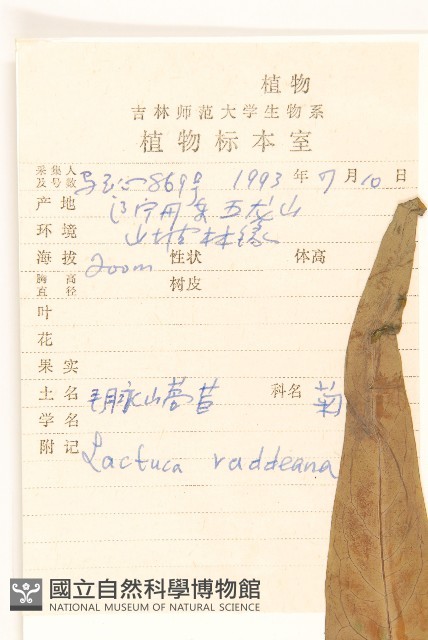 植物
吉林师范大学生物系
植物标本室
采集人及号数 马玉心 869号 1993 年 7 月 10 日
产地 辽宁丹东五龙山
环境 山坡林缘
海拔 200m 性状 体高
胸高直径 树皮
叶
花
果实
土名 毛脉山莴苣 科名 菊
学名
附记 Lactuca raddeana
國立自然科學博物館
NATIONAL MUSEUM OF NATURAL SCIENCE